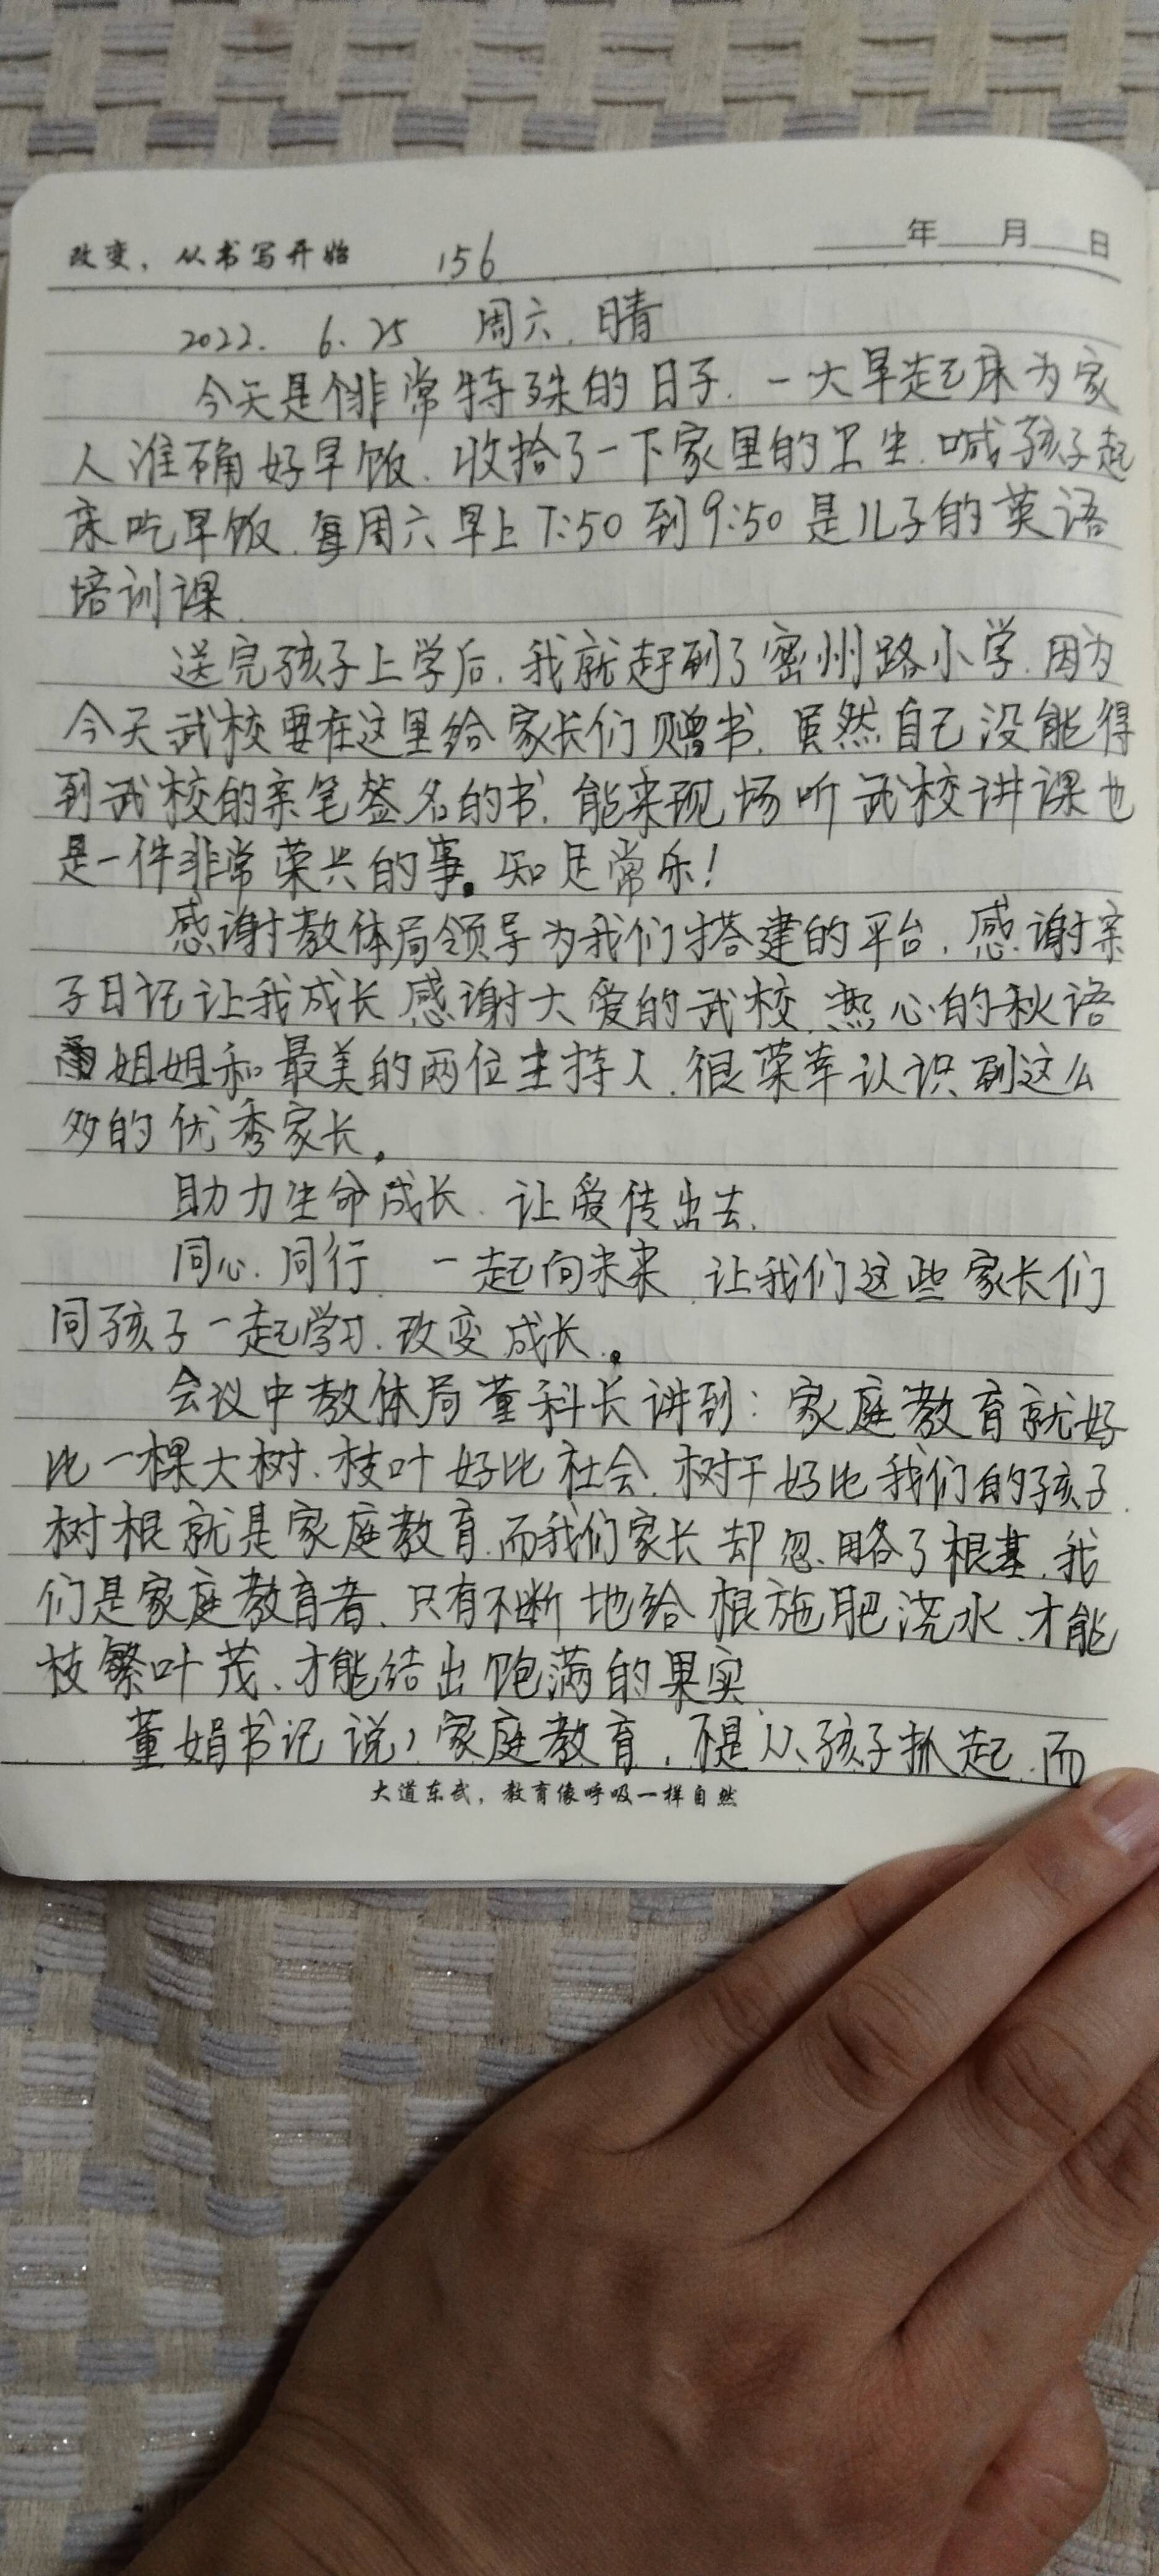 改变，从书写开始 156 ____年___月___日
2022. 6. 25 周六. 晴
今天是个非常特殊的日子. 一大早起床为家
人准确好早饭. 收拾了一下家里的卫生. 喊孩子起
床吃早饭. 每周六早上7:50到9:50是儿子的英语
培训课.
送完孩子上学后. 我就赶到了密州路小学. 因为
今天武校要在这里给家长们赠书. 虽然自己没能得
到武校的亲笔签名的书. 能来现场听武校讲课也
是一件非常荣兴的事。知足常乐!
感谢教体局领导为我们搭建的平台. 感谢亲
子日记让我成长 感谢大爱的武校. 热心的秋语
姐姐和最美的两位主持人. 很荣幸认识到这么
多的优秀家长。
助力生命成长. 让爱传出去.
同心. 同行. 一起向未来. 让我们这些家长们
同孩子一起学习. 改变成长。
会议中教体局董科长讲到: 家庭教育就好
比一棵大树、枝叶好比社会. 树干好比我们的孩子.
树根就是家庭教育. 而我们家长却忽略了根基. 我
们是家庭教育者. 只有不断地给根施肥浇水. 才能
枝繁叶茂、才能结出饱满的果实.
董娟书记说, 家庭教育. 不是从孩子抓起. 而
大道东武，教育像呼吸一样自然